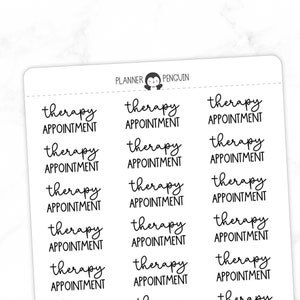 PLANNER PENGUIN
therapy therapy therapy
APPOINTMENT APPOINTMENT APPOINTMENT
therapy therapy therapy
APPOINTMENT APPOINTMENT APPOINTMENT
therapy therapy therapy
APPOINTMENT APPOINTMENT APPOINTMENT
therapy therapy therapy
APPOINTMENT APPOINTMENT APPOINTMENT
therapy therapy therapy
APPOINTMENT APPOINTMENT APPOINTMENT
therapy therapy